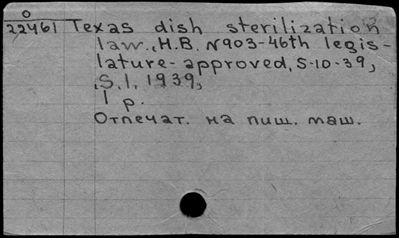 О
22461 Texas dish sterilization
law., H.B. №903-46th legis-
lature-approved, 5-10-39,
,S.l, 1939,
1 p.
Отпечат. на пиш. маш.